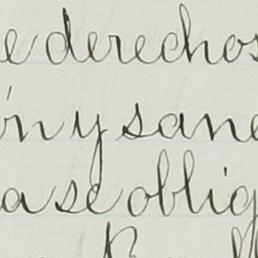 e derechos
ón y sane
ase oblig